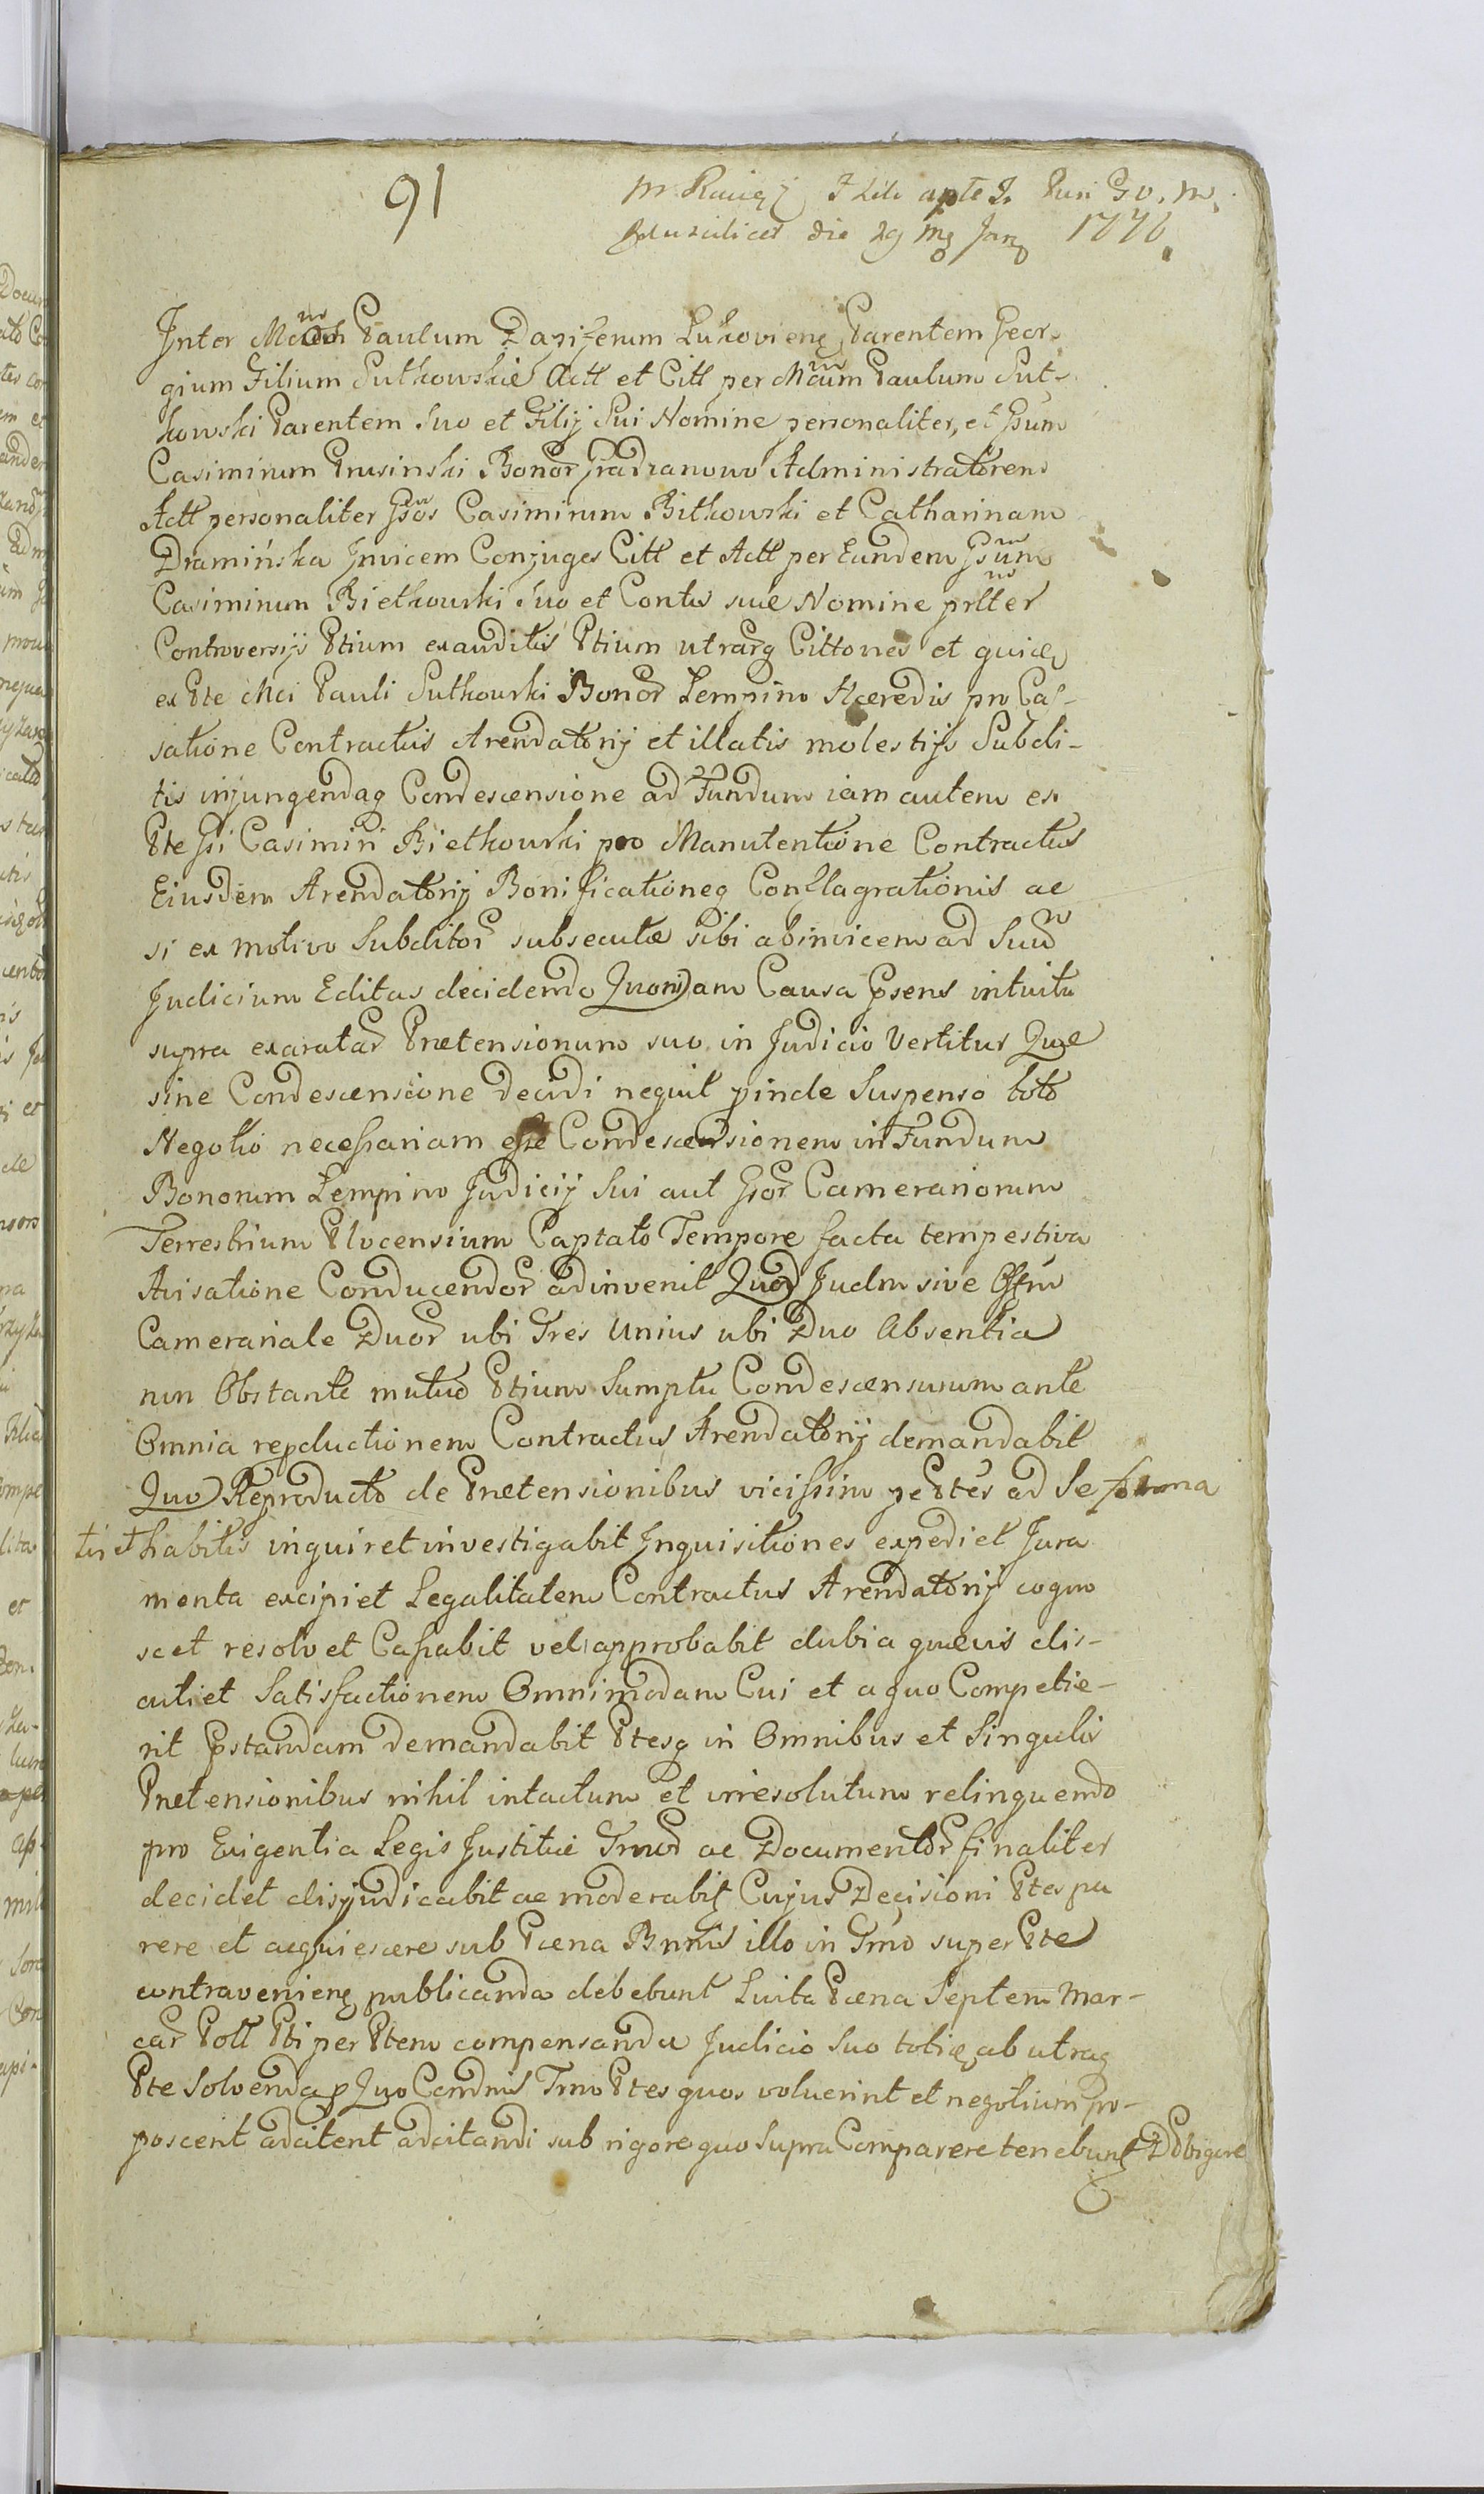 91
die 29 Jan 1776
Inter Paulum Dapiferum Lukoviens Parentem Geor-
gium Filium Sutkowskie Actt et Citt per Mcum Paulum Sut-
kowski Parentem Suo et Filij Sui Nomine personaliter, et Gsum
Casimirum Prusinski Bonor Gradzanowo Administratorem
Actt personaliter Gsos Casimirum Bitkowski et Catharinam
Dramińska Invicem Conjuges Citt et Actt per Eundem Gsum
Casimirum Bietkowski Suo et Contis suæ Nomine prltter
Controversijs Ptium exauditis Ptium utrarq Cittones et quidem
ex Pte Mci Pauli Sutkowski Bonor Lempino Hæredis pro Cas-
satione Contractus Arendatorij et illatis molestijs Subdi-
tis injungendaq Condescensione ad Fundum iam autem ex
Pte Gsi Casimiri Bietkowski pro Manutentione Contractus
Eiusdem Arendatorij Bonificationeq Conflagrationis ac
si ex motivo Subditor subsecutæ sibi abinvicem ad Suu
Judicium Editas decidendo Quoniam Causa Psens intuitu
supra exaratar Prætensionum suo in Judicio Vertitur Quæ
sine Condescensione Decidi nequit pinde Suspenso toto
Negotio necessariam esse Condescensionem in Fundum
Bonorum Lempino Judicij Sui aut Gsor Camerariorum
Terrestrium Plocensium Captato Tempore facta tempestiva
Avisatione Conducendor adinvenit Quod Judm sive Offm
Camerariale Duor ubi Tres Unius ubi Duo Absentia
non Obstante mutuo Ptium Sumptu Condescensurum ante
Omnia repductionem Contractus Arendatorij demandabit
Quo Reproducto de Prætensionibus vicissim pe Ptes ad Se forma
tis et habitis inquiret investigabit Inquisitiones expediet Jura
menta excipiet Legalitatem Contractus Arendatorij cogno
scet resolvet Cassabit vel approbabit dubia quævis dis-
cutiet Satisfactionem Omnimodam Cui et a quo Competie-
rit Pstandam demandabit Ptesq in Omnibus et Singulis
Prætensionibus nihil intactum et irresolutum relinquendo
pro Exigentia Legis Justitiæ ac Documentor finaliter
decidet disjudicabit ac moderabit Cujus Decisioni Ptes pa
rere et acquiescere sub Pæna Bnnis illo in Tmo super Pte
contravenienę publicanda debebunt Luita Pæna Septem Mar-
car Poll Pti per Ptem compensanda Judicio Suo toties ab utraq
Pte Solvenda p Quo Condnis Tmo Ptes quos voluerint et negotium pro-
poscent adcitent adcitandi sub rigore quo Supra Comparere tenebunt